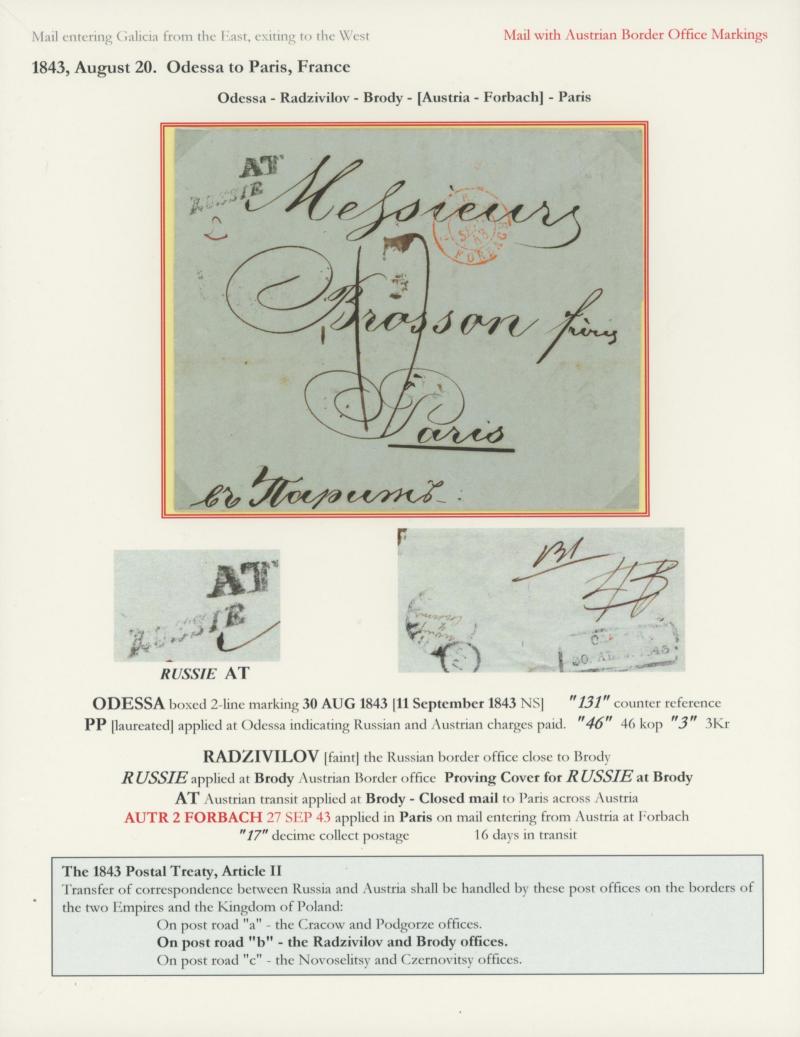 Mail entering Galicia from the East, exiting to the West
Mail with Austrian Border Office Markings
1843, August 20. Odessa to Paris, France
Odessa - Radzivilov - Brody - [Austria - Forbach] - Paris
AT
RUSSIE
Messieurs
FORBACH
Brosson frères
Paris
въ Парижъ
AT
RUSSIE
131
RUSSIE AT
ODESSA boxed 2-line marking 30 AUG 1843 [11 September 1843 NS] "131" counter reference
PP [laureated] applied at Odessa indicating Russian and Austrian charges paid. "46" 46 kop "3" 3Kr
RADZIVILOV [faint] the Russian border office close to Brody
RUSSIE applied at Brody Austrian Border office Proving Cover for RUSSIE at Brody
AT Austrian transit applied at Brody - Closed mail to Paris across Austria
AUTR 2 FORBACH 27 SEP 43 applied in Paris on mail entering from Austria at Forbach
"17" decime collect postage 16 days in transit
The 1843 Postal Treaty, Article II
Transfer of correspondence between Russia and Austria shall be handled by these post offices on the borders of
the two Empires and the Kingdom of Poland:
On post road "a" - the Cracow and Podgorze offices.
On post road "b" - the Radzivilov and Brody offices.
On post road "c" - the Novoselitsy and Czernovitsy offices.